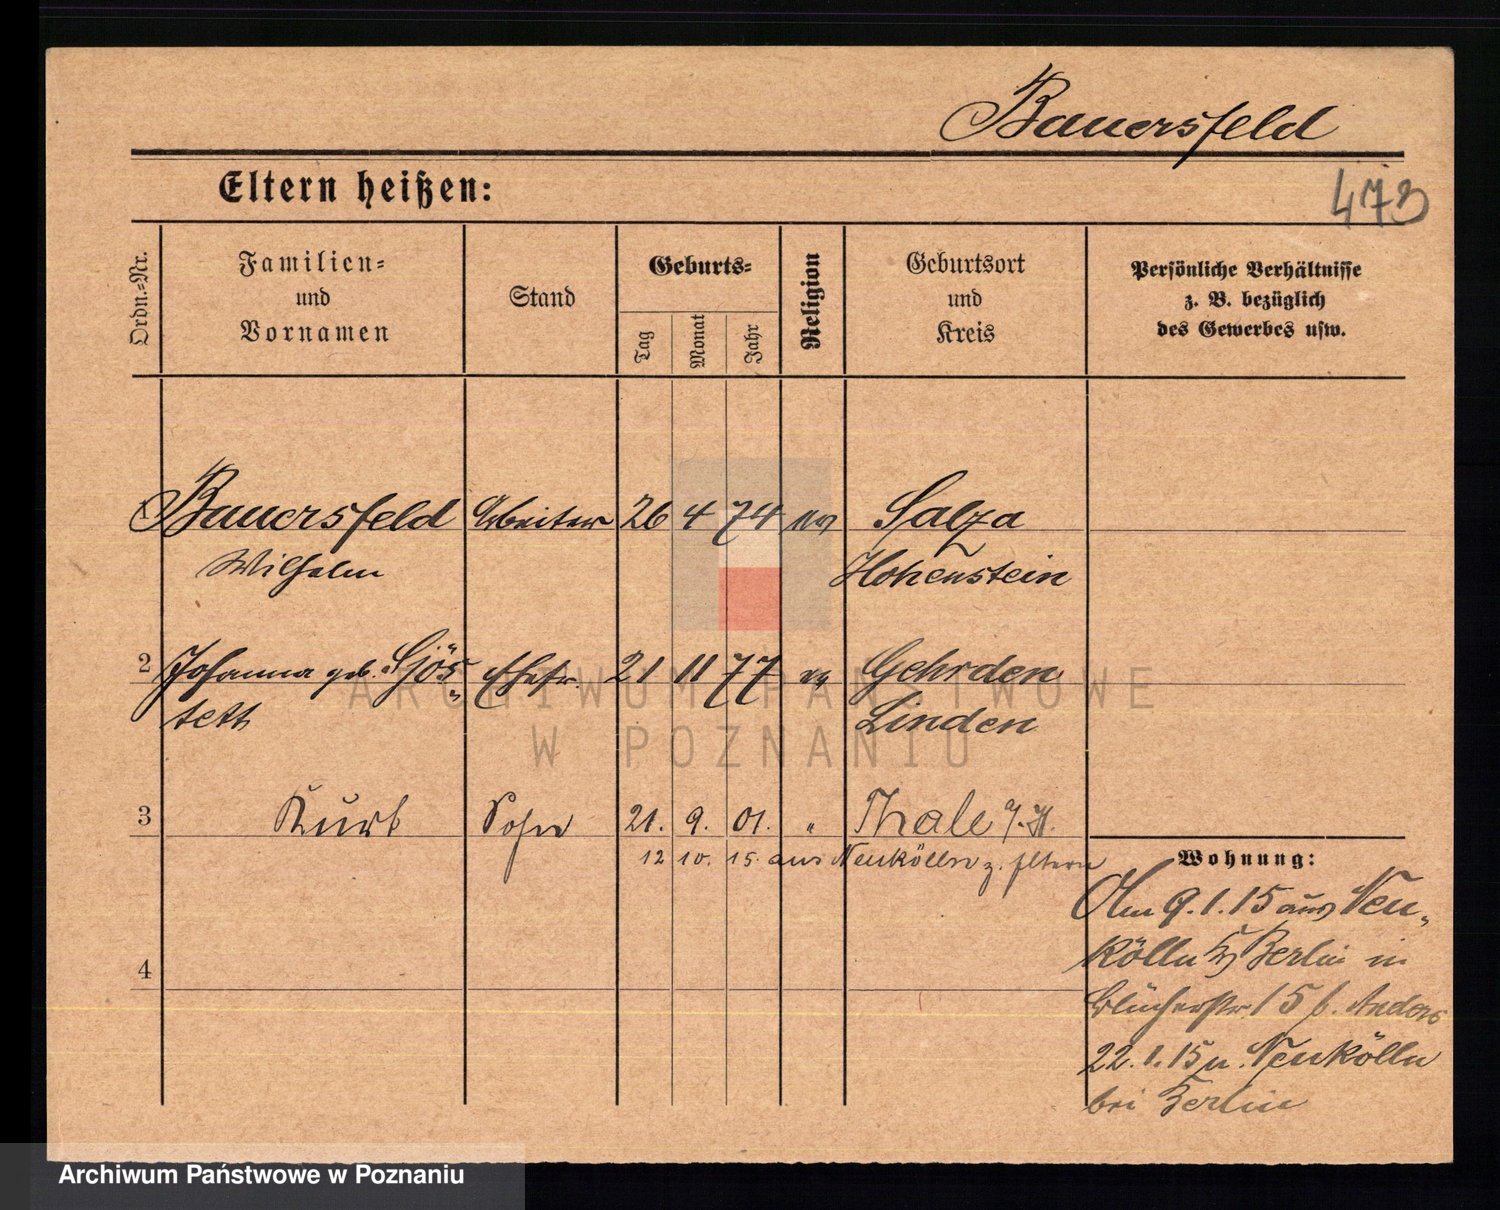 Bauersfeld
Eltern heißen:
473
Ordn.-Nr.
Familien-
und
Vornamen
Stand
Geburts-
Tag
Monat
Jahr
Religion
Geburtsort
und
Kreis
Persönliche Verhältnisse
z. B. bezüglich
des Gewerbes usw.
1 Bauersfeld Arbeiter 26 4 74 ev Salza
Wilhelm Hohenstein
2 Johanna geb. Sjös- Ehefr. 21 11 77 ev Gehrden
tett Linden
3 Kurt Sohn 21. 9. 01. " Thale a. H.
12 10. 15. aus Neukölln z. Eltern
Wohnung:
Am 9.1.15 aus Neu-
kölln b/ Berlin in
Blücherstr. 15 b. Anders
22.1.15 n. Neukölln
bei Berlin
4
ARCHIWUM PAŃSTWOWE
W POZNANIU
Archiwum Państwowe w Poznaniu